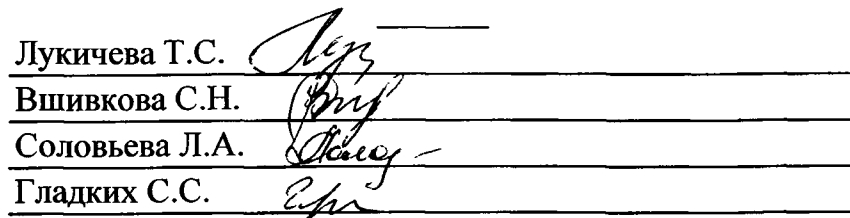 Лукичева Т.С.
Вшивкова С.Н.
Соловьева Л.А.
Гладких С.С.